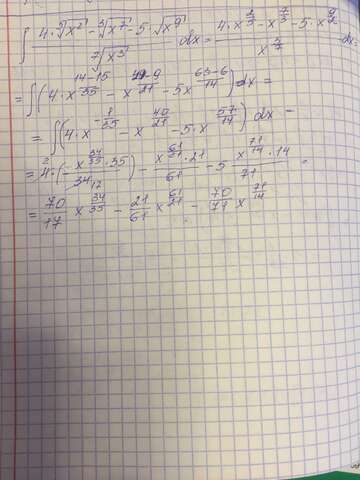 ∫ (4·⁵√x² - ³√x⁷ - 5·√x⁹) / ⁷√x³ dx = (4·x^(2/5) - x^(7/3) - 5·x^(9/2)) / x^(3/7) dx
= ∫(4·x^((14-15)/35) - x^((49-9)/21) - 5x^((63-6)/14)) dx =
= ∫(4·x^(-1/35) - x^(40/21) - 5·x^(57/14)) dx =
= 4·(x^(34/35)·35 / 34) - x^(61/21)·21 / 61 - 5 x^(71/14)·14 / 71 =
= 70/17 x^(34/35) - 21/61 x^(61/21) - 70/71 x^(71/14)